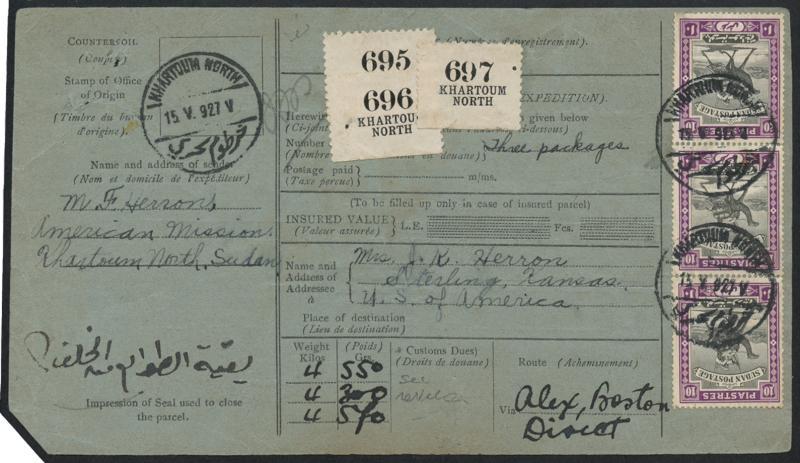 COUNTERFOIL
(Coupon)
Stamp of Office
of Origin
(Timbre du bureau
d'origine).
KHARTOUM NORTH
15 V. 927 V
Name and address of sender
(Nom et domicile de l'expéditeur)
M. F. Herron,
American Mission,
Khartoum North, Sudan
بقية الطوابع بالخلف
Impression of Seal used to close
the parcel.
(Numéro d'enregistrement).
695
696
KHARTOUM
NORTH
697
KHARTOUM
NORTH
EXPEDITION).
Herewith
given below
(Ci-joint
ci-dessous)
Number
Three packages
(Nombre
en douane)
Postage paid
(Taxe perçue)
m/ms.
(To be filled up only in case of insured parcel)
INSURED VALUE
(Valeur assurée)
L.E.
Fcs.
Name and
Address of
Addressee
à
Mrs. J. K. Herron
Sterling, Kansas,
U. S. of America
Place of destination
(Lieu de destination)
Weight (Poids)
Kilos Grs.
4 550
4 300
4 570
* Customs Dues)
(Droits de douane)
see
Route (Acheminement)
Via Alex, Boston
Direct
KHARTOUM NORTH
15 V. 927 V
10 PIASTRES 10
SUDAN POSTAGE
10 PIASTRES 10
15 V. 927 V
10 PIASTRES 10
SUDAN POSTAGE